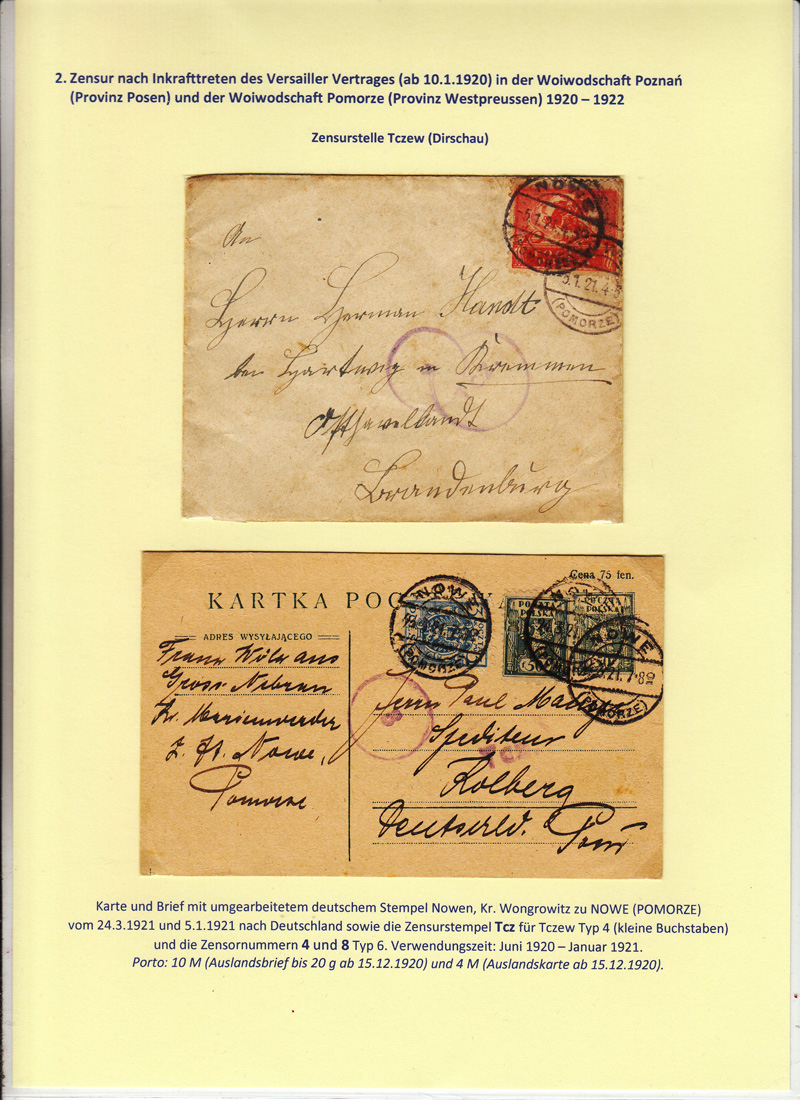 2. Zensur nach Inkrafttreten des Versailler Vertrages (ab 10.1.1920) in der Woiwodschaft Poznań
(Provinz Posen) und der Woiwodschaft Pomorze (Provinz Westpreussen) 1920 – 1922
Zensurstelle Tczew (Dirschau)
NOWE
5.1.21.4-5
(POMORZE)
An
Herrn Herman Handt
bei Hartwig in Kremmen
Osthavellandt
Brandenburg
Cena 75 fen.
KARTKA POC
NOWE
(POMORZE)
POCZTA
POLSKA
POCZTA
POLSKA
NOWE
21.7-8
(POMORZE)
ADRES WYSYŁAJĄCEGO
Franz
Gross Nebrau
Kr. Marienwerder
z. Zt. Nowe,
Pomorze
8
Tcz
Herrn Paul
Spediteur
Kolberg
Deutschld. Pom
Karte und Brief mit umgearbeitetem deutschem Stempel Nowen, Kr. Wongrowitz zu NOWE (POMORZE)
vom 24.3.1921 und 5.1.1921 nach Deutschland sowie die Zensurstempel Tcz für Tczew Typ 4 (kleine Buchstaben)
und die Zensornummern 4 und 8 Typ 6. Verwendungszeit: Juni 1920 – Januar 1921.
Porto: 10 M (Auslandsbrief bis 20 g ab 15.12.1920) und 4 M (Auslandskarte ab 15.12.1920).